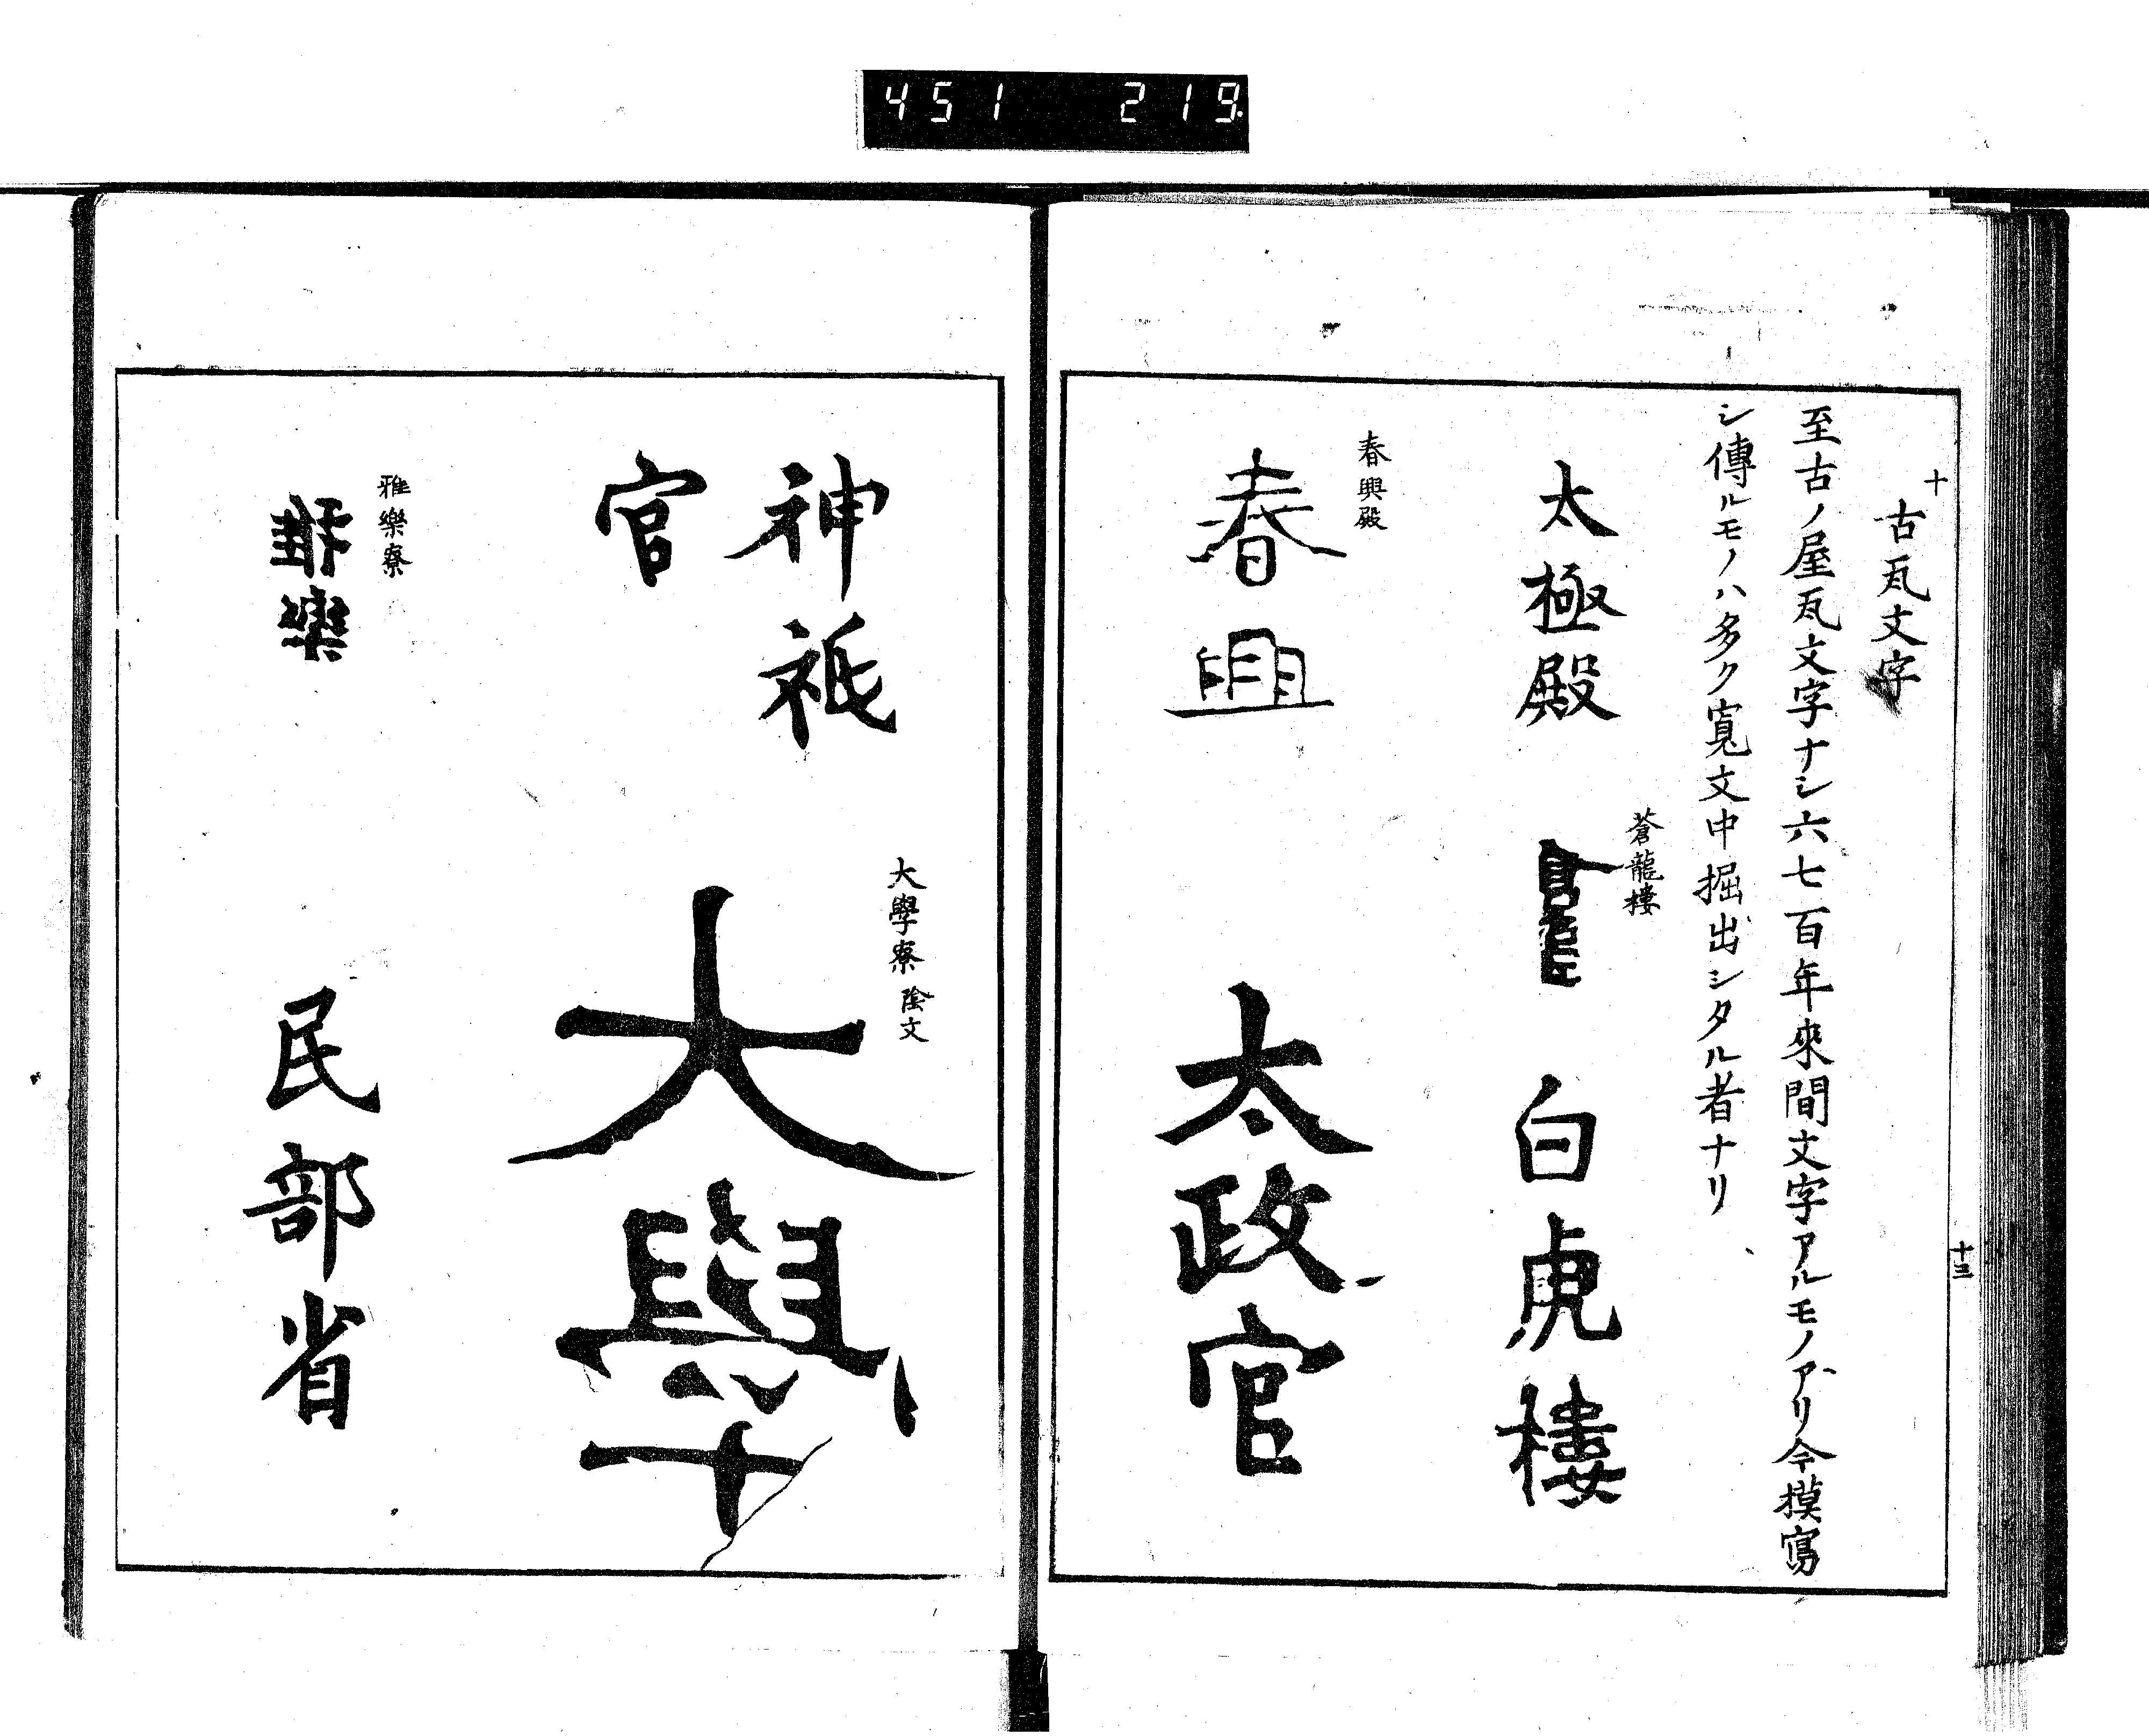 451 219.
十
古瓦文字
至古ノ屋瓦文字ナシ六七百年來間文字アルモノアリ今摸寫
シ傳ルモノハ多ク寛文中掘出シタル者ナリ
太極殿
蒼龍樓
白虎樓
春興殿
春興
太政官
十三
神祇
官
大學寮 陰文
大學
雅樂寮
雅樂
民部省